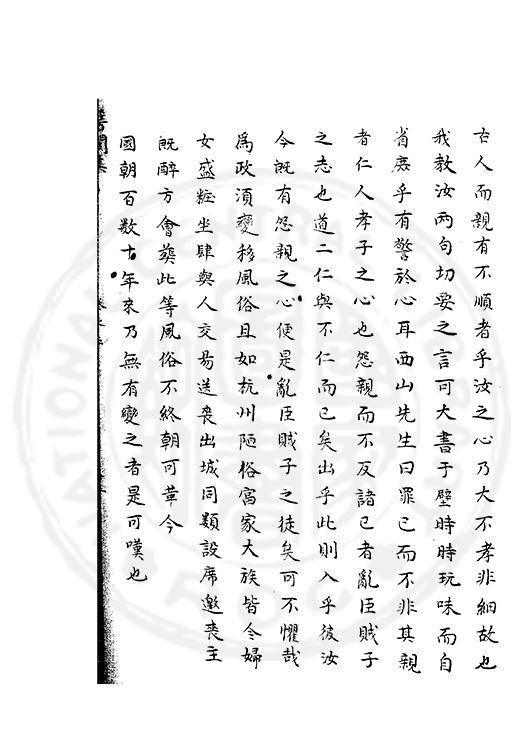 古人而親有不順者乎汝之心乃大不孝非細故也
我教汝兩句切要之言可大書于壁時時玩味而自
省庶乎有警於心耳西山先生曰罪已而不非其親
者仁人孝子之心也怨親而不反諸已者亂臣賊子
之志也道二仁與不仁而已矣出乎此則入乎彼汝
今既有怨親之心便是亂臣賊子之徒矣可不懼哉
為政須變移風俗且如杭州陋俗富家大族皆令婦
女盛粧坐肆與人交易送喪出城同類設席邀喪主
既醉方會塟此等風俗不終朝可革今
國朝百數十年來乃無有變之者是可嘆也